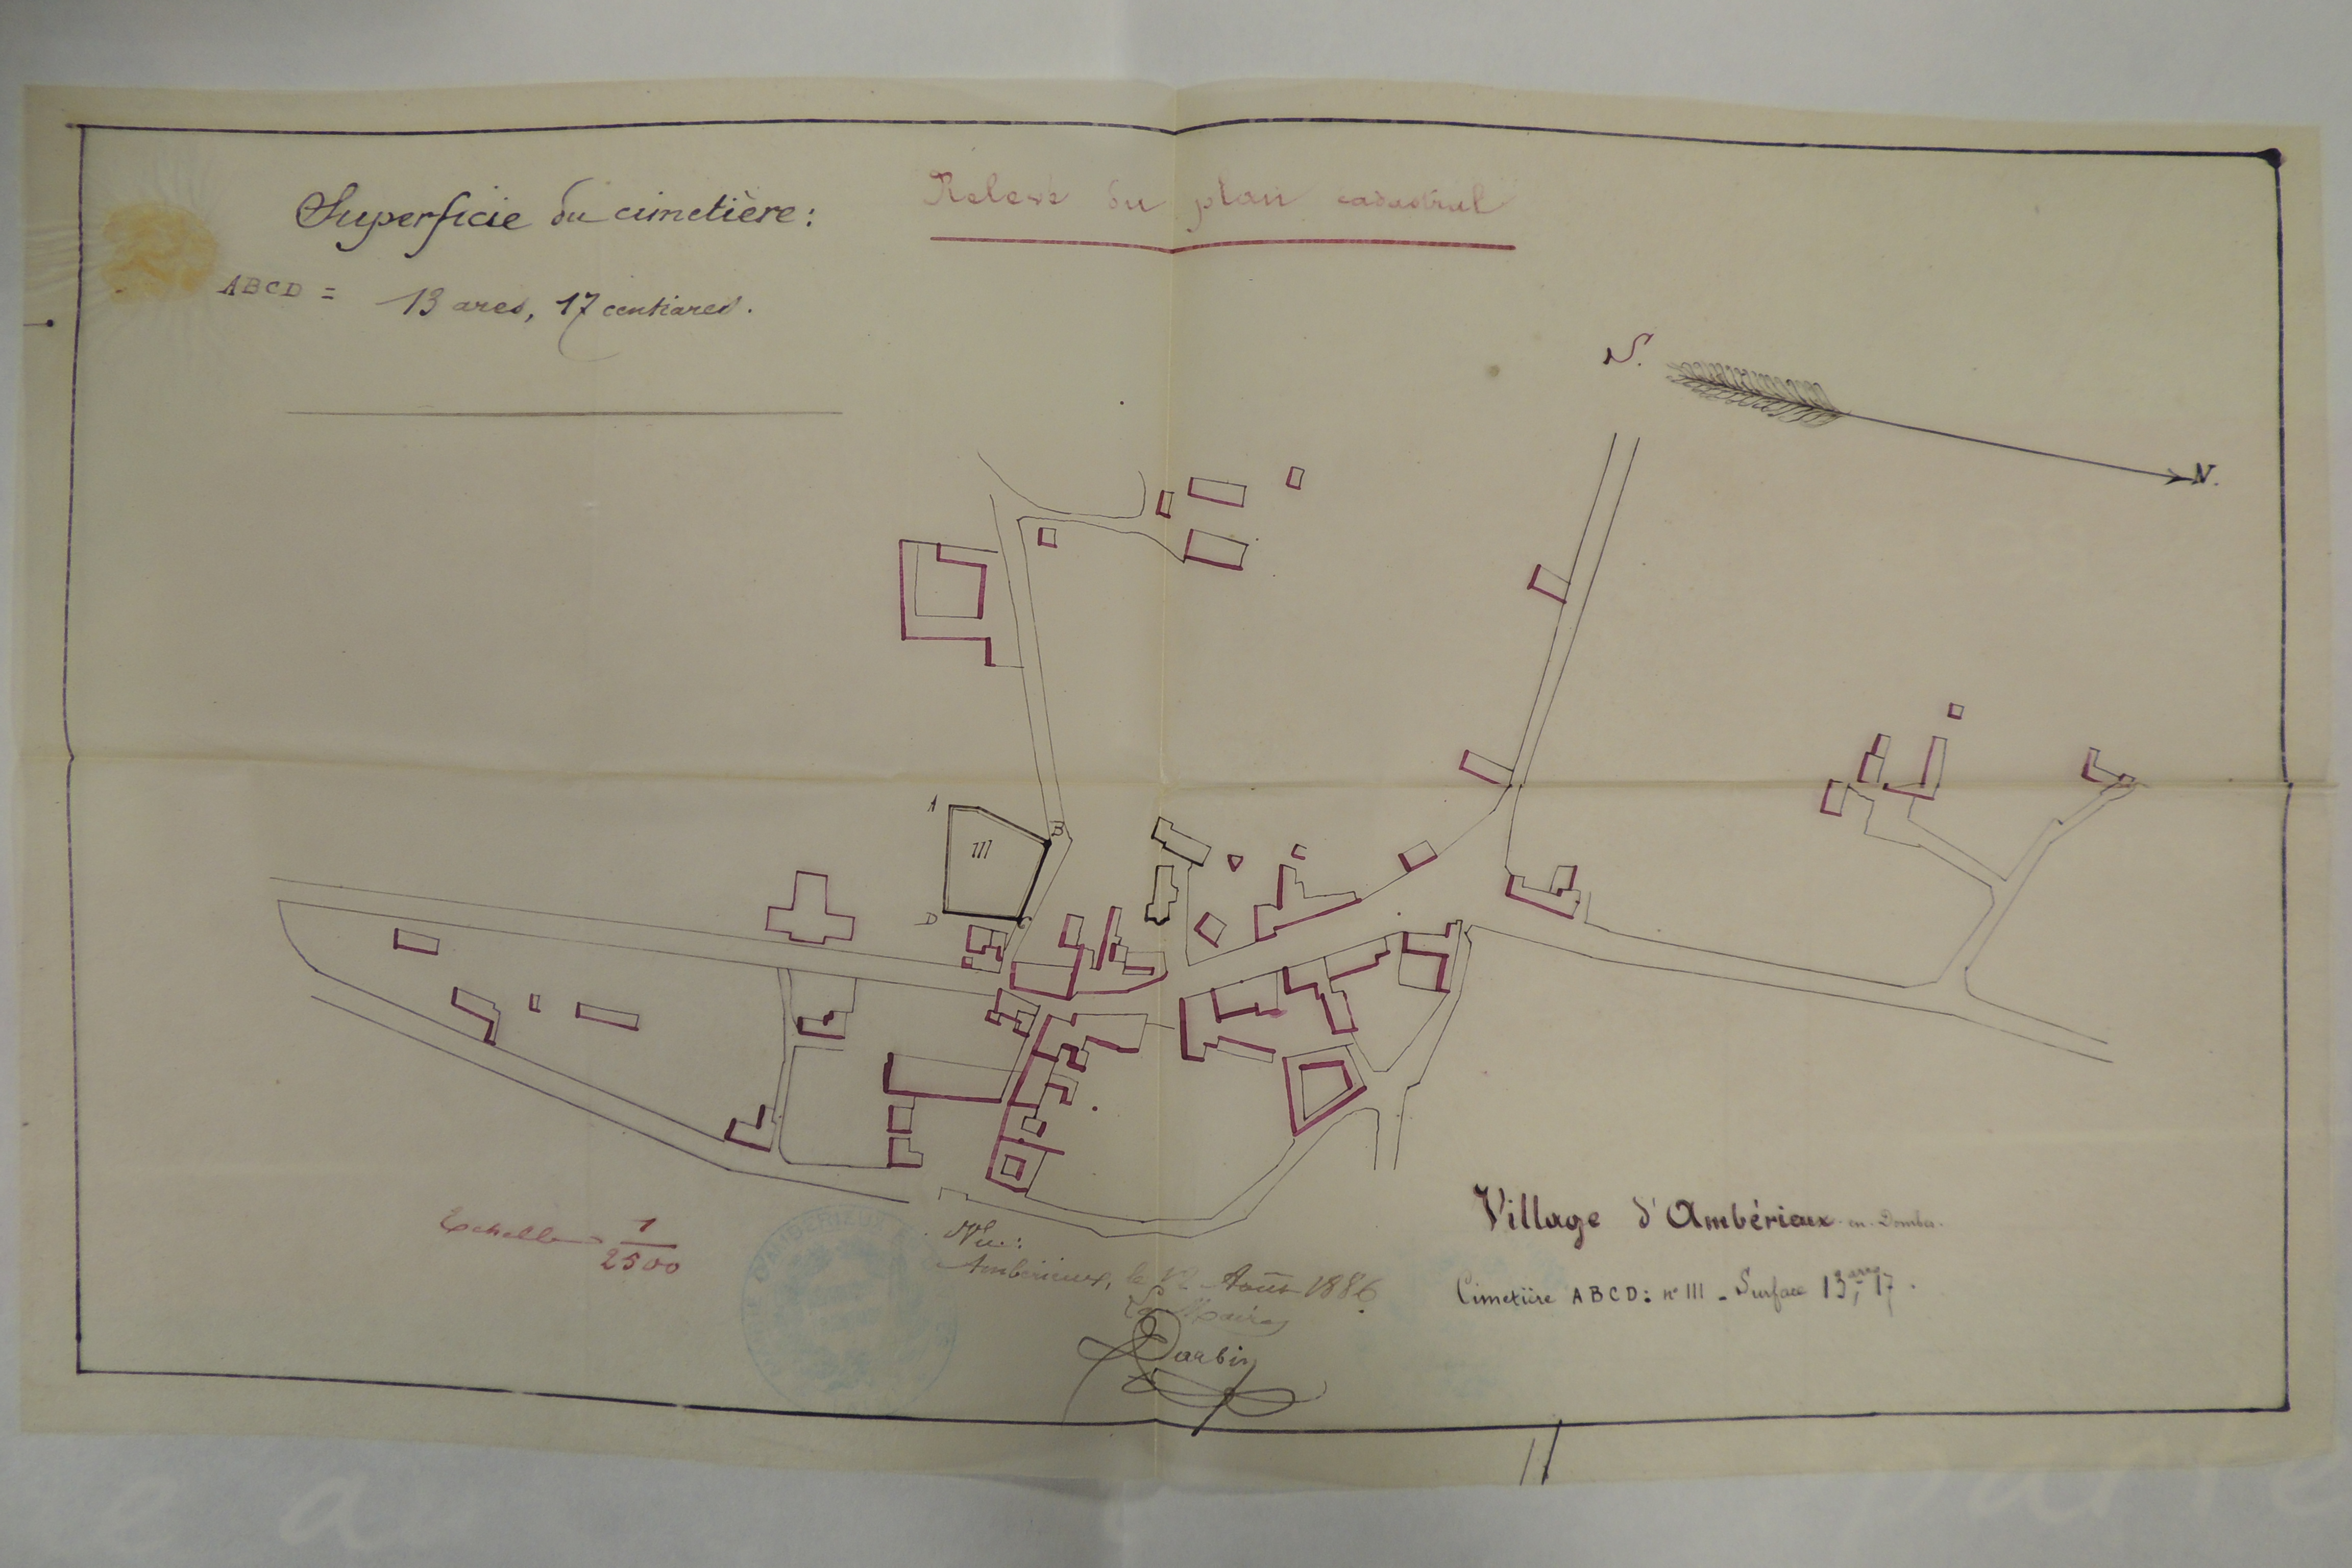 Superficie du cimetière:
ABCD = 13 ares, 17 centiares.
Relevé du plan cadastral
S.
N.
A
B
III
D
C
Village d'Ambérieux-en-Dombes.
Cimetière ABCD: n° III - Surface 13 ares, 17.
Echelle 1/2500
Vu:
Ambérieux, le 12 Août 1886
Le Maire
Darbin